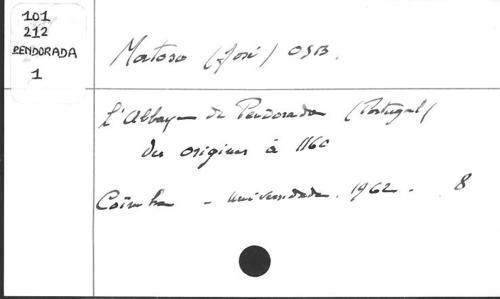 101
212
PENDORADA
1
Mattoso (José) OSB.
L'Abbaye de Pendorada (Portugal)
des origines à 1160
Coïmbra - Universidade. 1962. 8